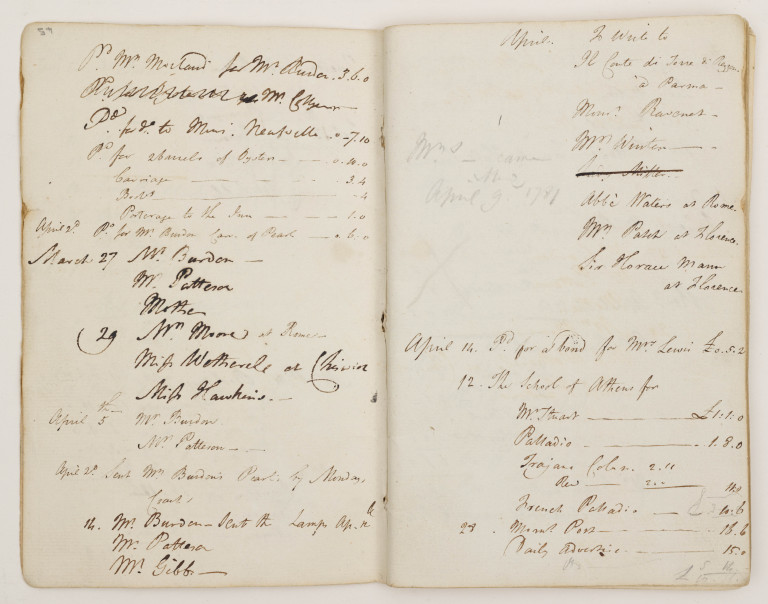 Pd. Mr. for Mr. Burdon. 3.6.0
Mr.
Do. for do. to Mons.r 0-7.10
Pd. for 2 barrels of Oysters — — 0.10.0
Carriage — — 3.4
— 4
Porterage to the Inn — — 1.0
April 2d. Pd. for Mr. Burdon of Pearl — 0.6.0
March 27 Mr. Burdon —
Mr. Patteson
Mother
29 Mr. Moore at Rome
Miss at Chiswick
Miss Hawkins. —
April 5th Mr. Burdon
Mr. Patteson — —
April 2d. Sent Mr. Burdon's Pearl by Mondays
Coach
14. Mr. Burdon — Sent the Lamps Ap. 12th
Mr. Patteson
Mr. Gibbs —
April. To Write to
Il Conte di Torre di
a Parma —
Mons.r Ravenet —
Mr. Winter — —
Miller
Abbè Waters at Rome.
Mr. Patch at Florence.
Sir Horace Mann
at Florence
Mrs — came
April 9 1781
April 14. Pd. for a bond for Mrs. Lewis £0.5.2
12. The School of Athens for
Mr. Stuart — £1:1:0
Palladio — 1.8.0
Trajans Colm. 2.11
French Palladio — 10.6
28. Morng. Post — 18.6
Daily advertiser — 15.0